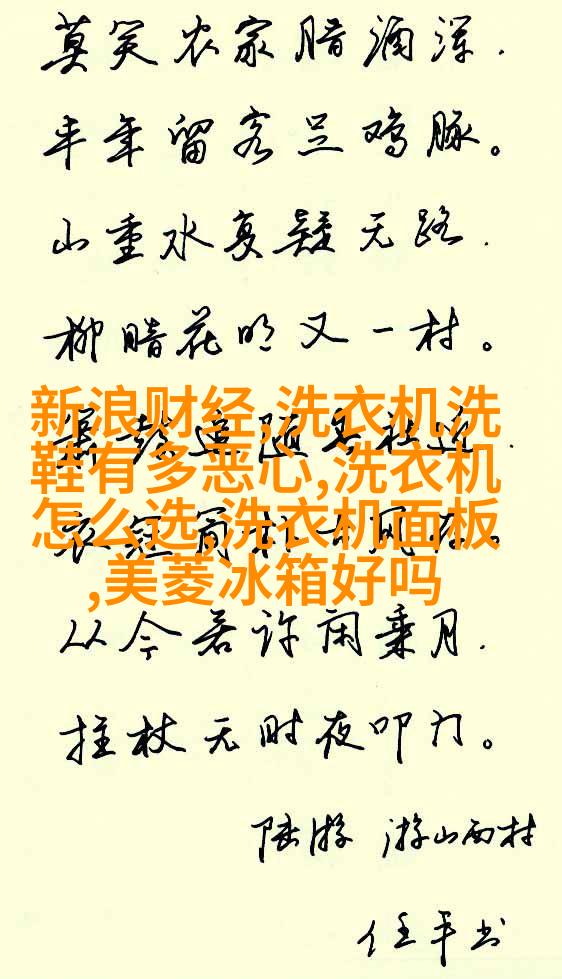 莫笑农家腊酒浑.
丰年留客足鸡豚。
山重水复疑无路.
柳暗花明又一村。
新浪财经,洗衣机洗
鼓追随春社近.
鞋有多恶心,洗衣机
怎么选,洗衣机面板
衣冠简风存。
,美菱冰箱好吗
从今若许闲乘月.
拄杖无时夜叩门。
陆游 游山西村
任平书